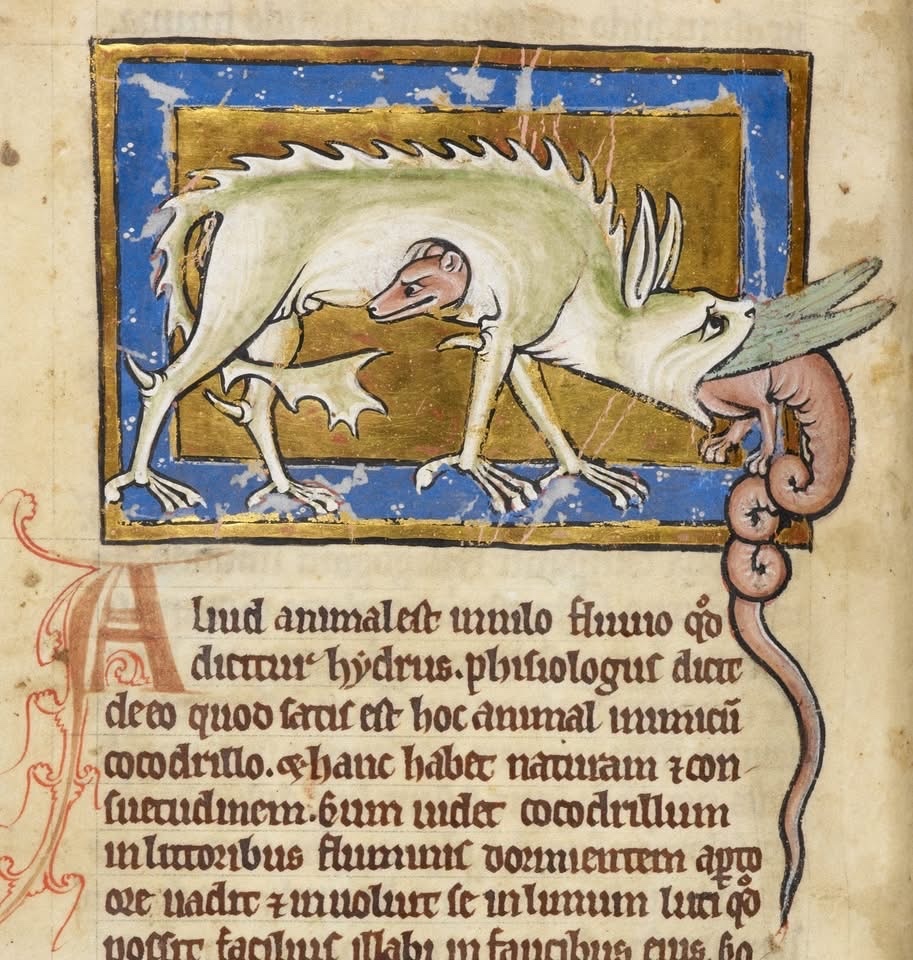 Aliud animal est in nilo fluuio qͦd
dicitur hẏdrus. phisiologus dicit
de eo quod satis est hoc animal inimicū
cocodrillo. & hanc habet naturam ⁊ con
suetudinem. Cum uidet cocodrillum
in littoribus fluminis dormientem aꝑto
ore uadit ⁊ inuoluit se in limum luti qͦd
possit facilius illabi in faucibus eius.